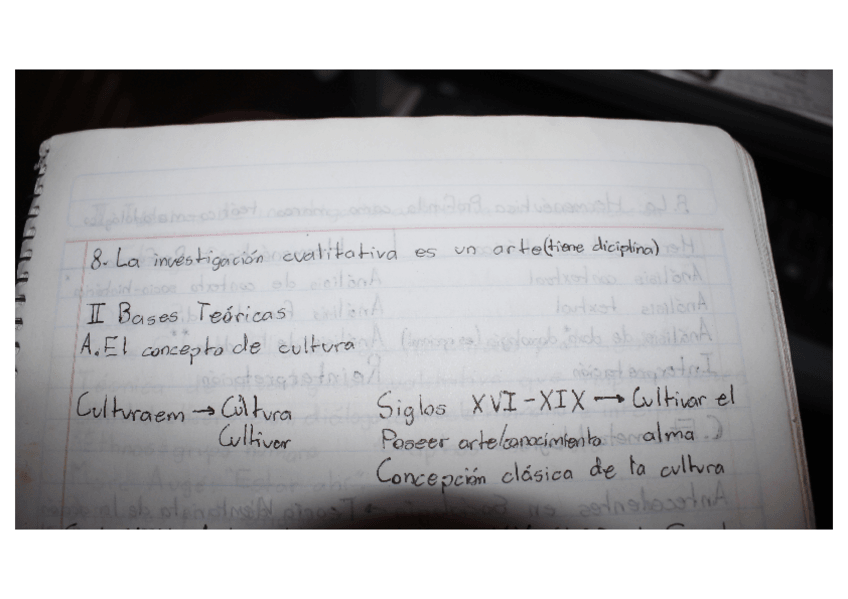 8. La investigación cualitativa es un arte (tiene diciplina)
II Bases Teóricas
A. El concepto de cultura
Culturaem → Cultura
Cultivar
Siglos XVI - XIX → Cultivar el alma
Poseer arte/conocimiento
Concepción clásica de la cultura